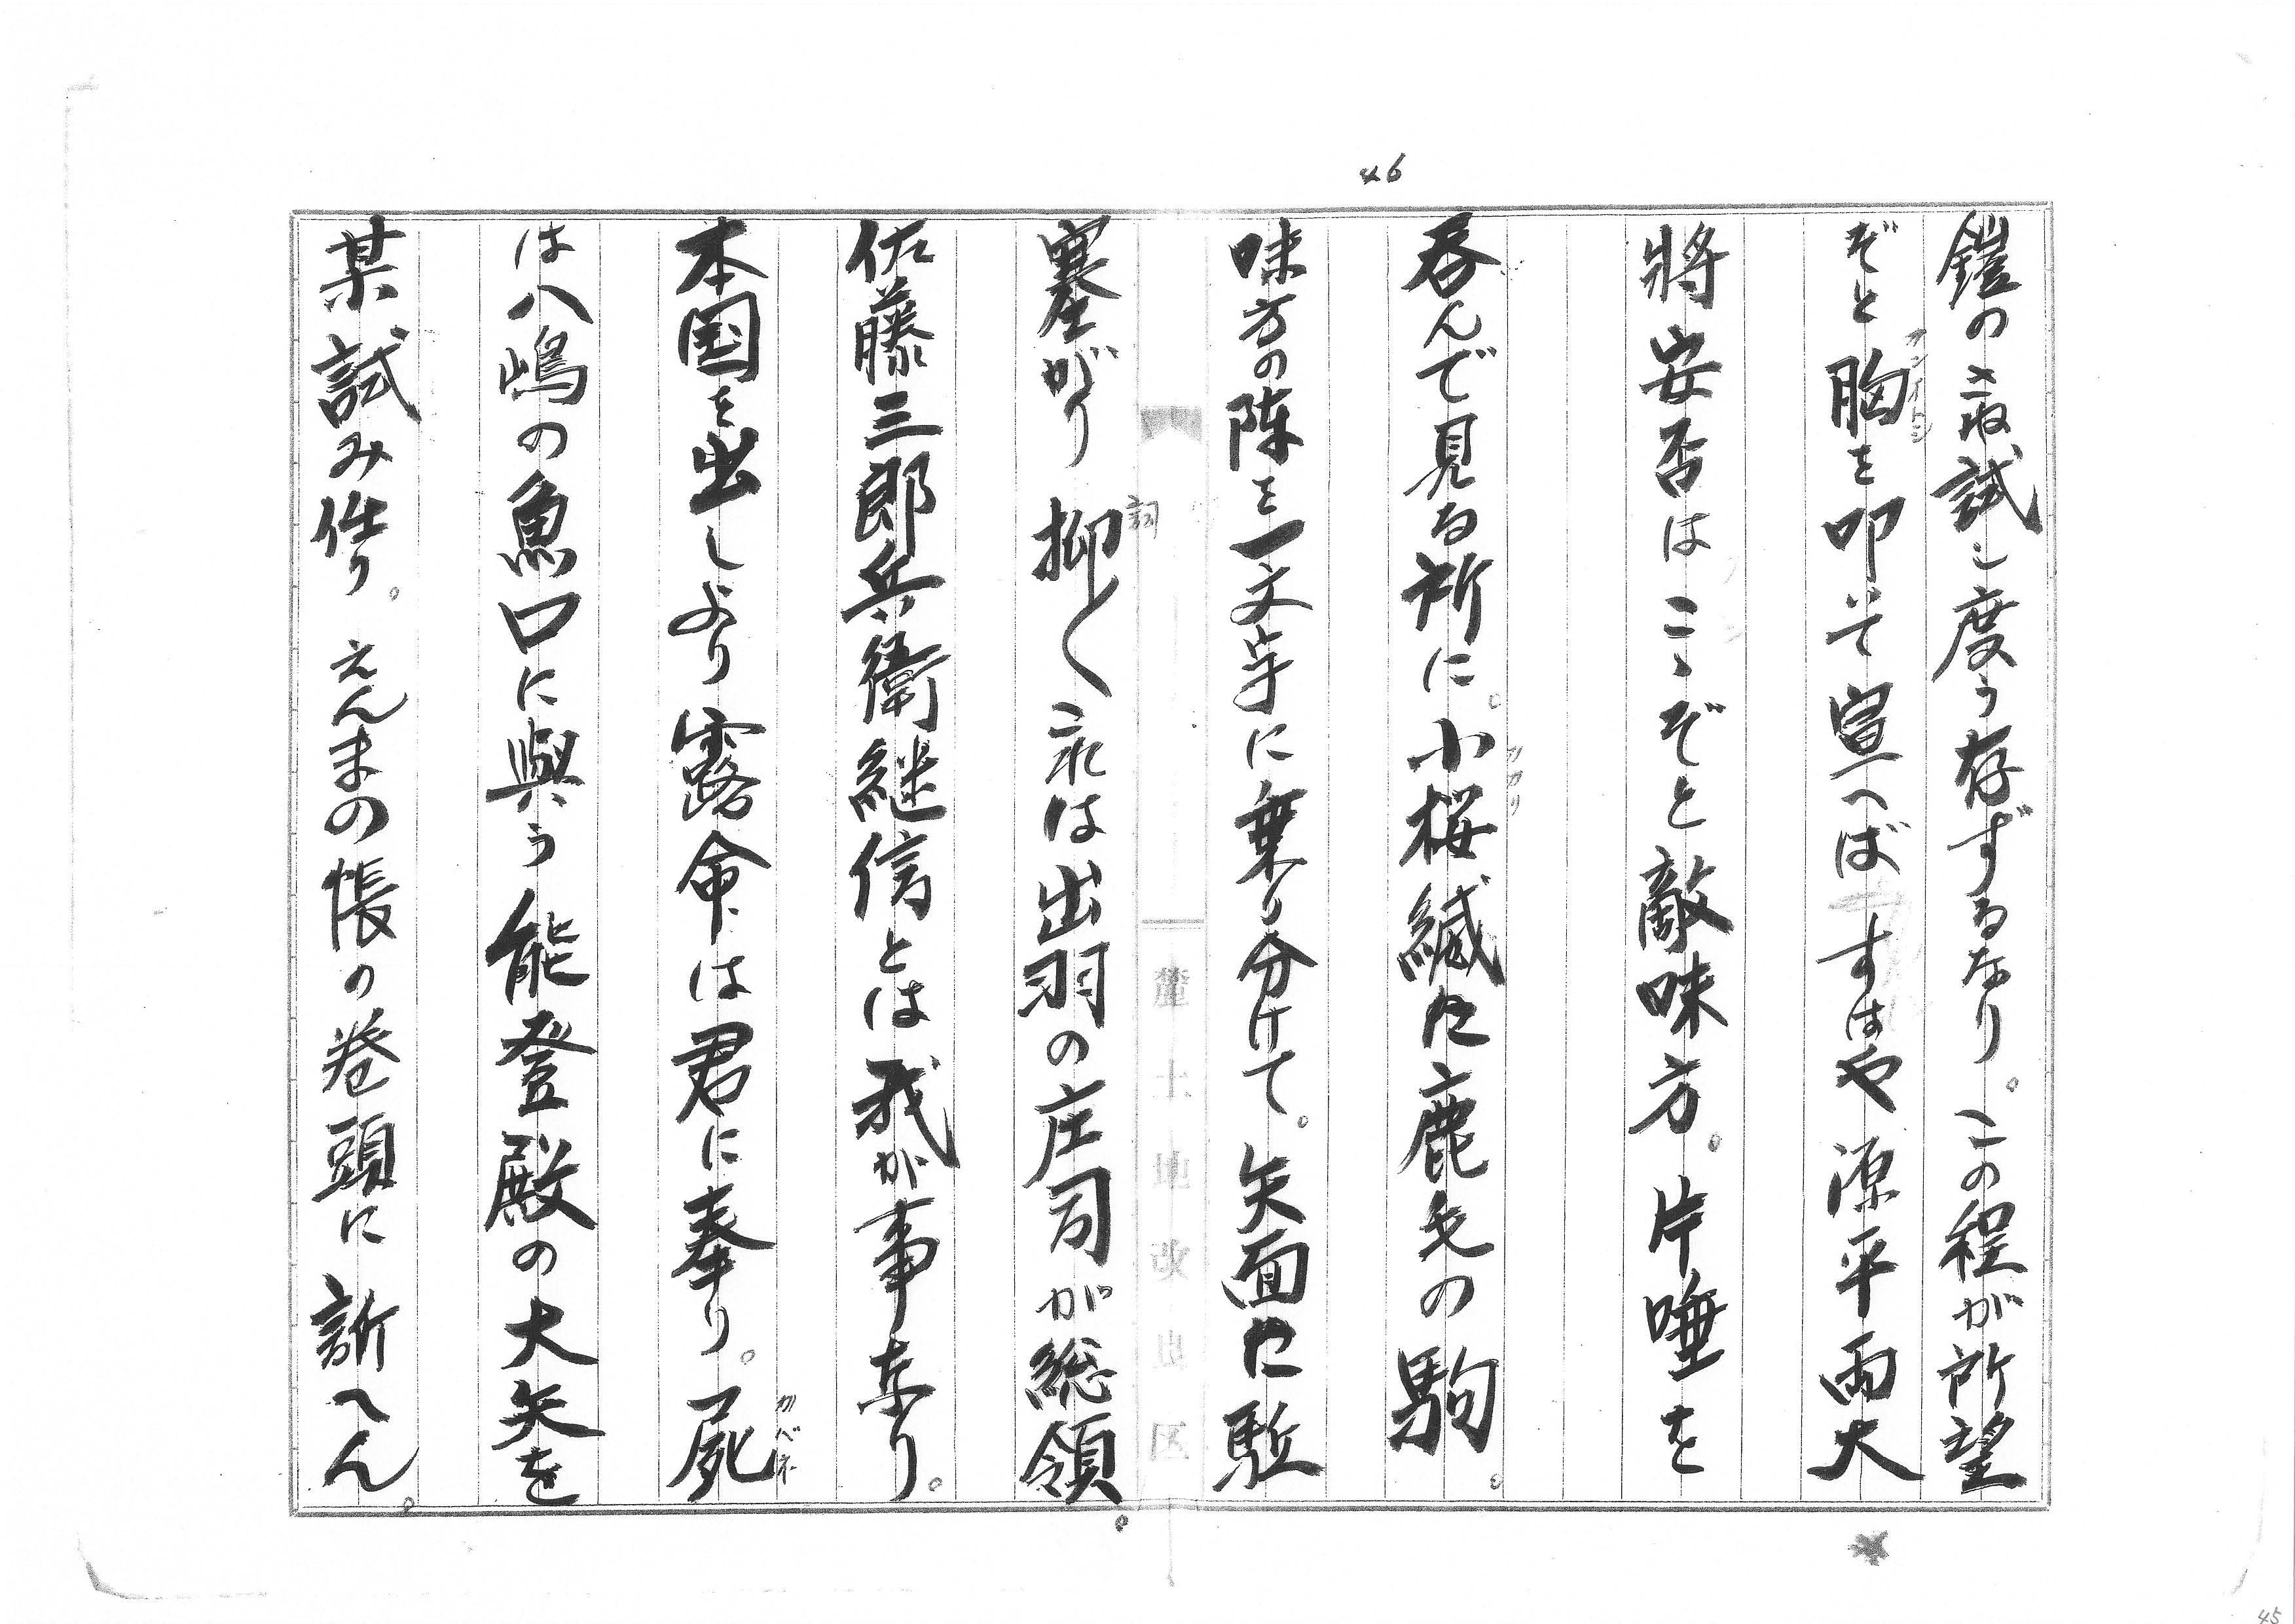 46
鎧の実試し度う存ずるなり。この程が所望
ぞと胸を叩いて宣へばすはや源平両大
將安否はこゝぞと敵味方。片唾を
呑んで見る所に。小桜縅た鹿毛の駒。
味方の陣を一文字に乗り分けて。矢面た駈
塞がり
詞
抑〱これは出羽の庄司が総領。
佐藤三郎兵衛継信とは我が事なり。
本国を出しより露命は君に奉り。屍
カバネ
は八嶋の魚口に與う能登殿の大矢を
某試み仕り。えんまの帳の巻頭に訴へん。
45